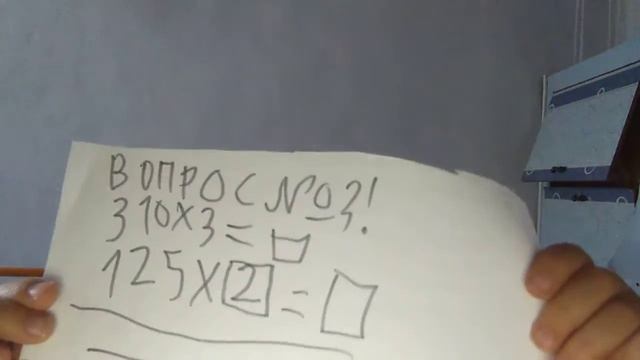 ВОПРОС №3!
310х3=□
125х2=□